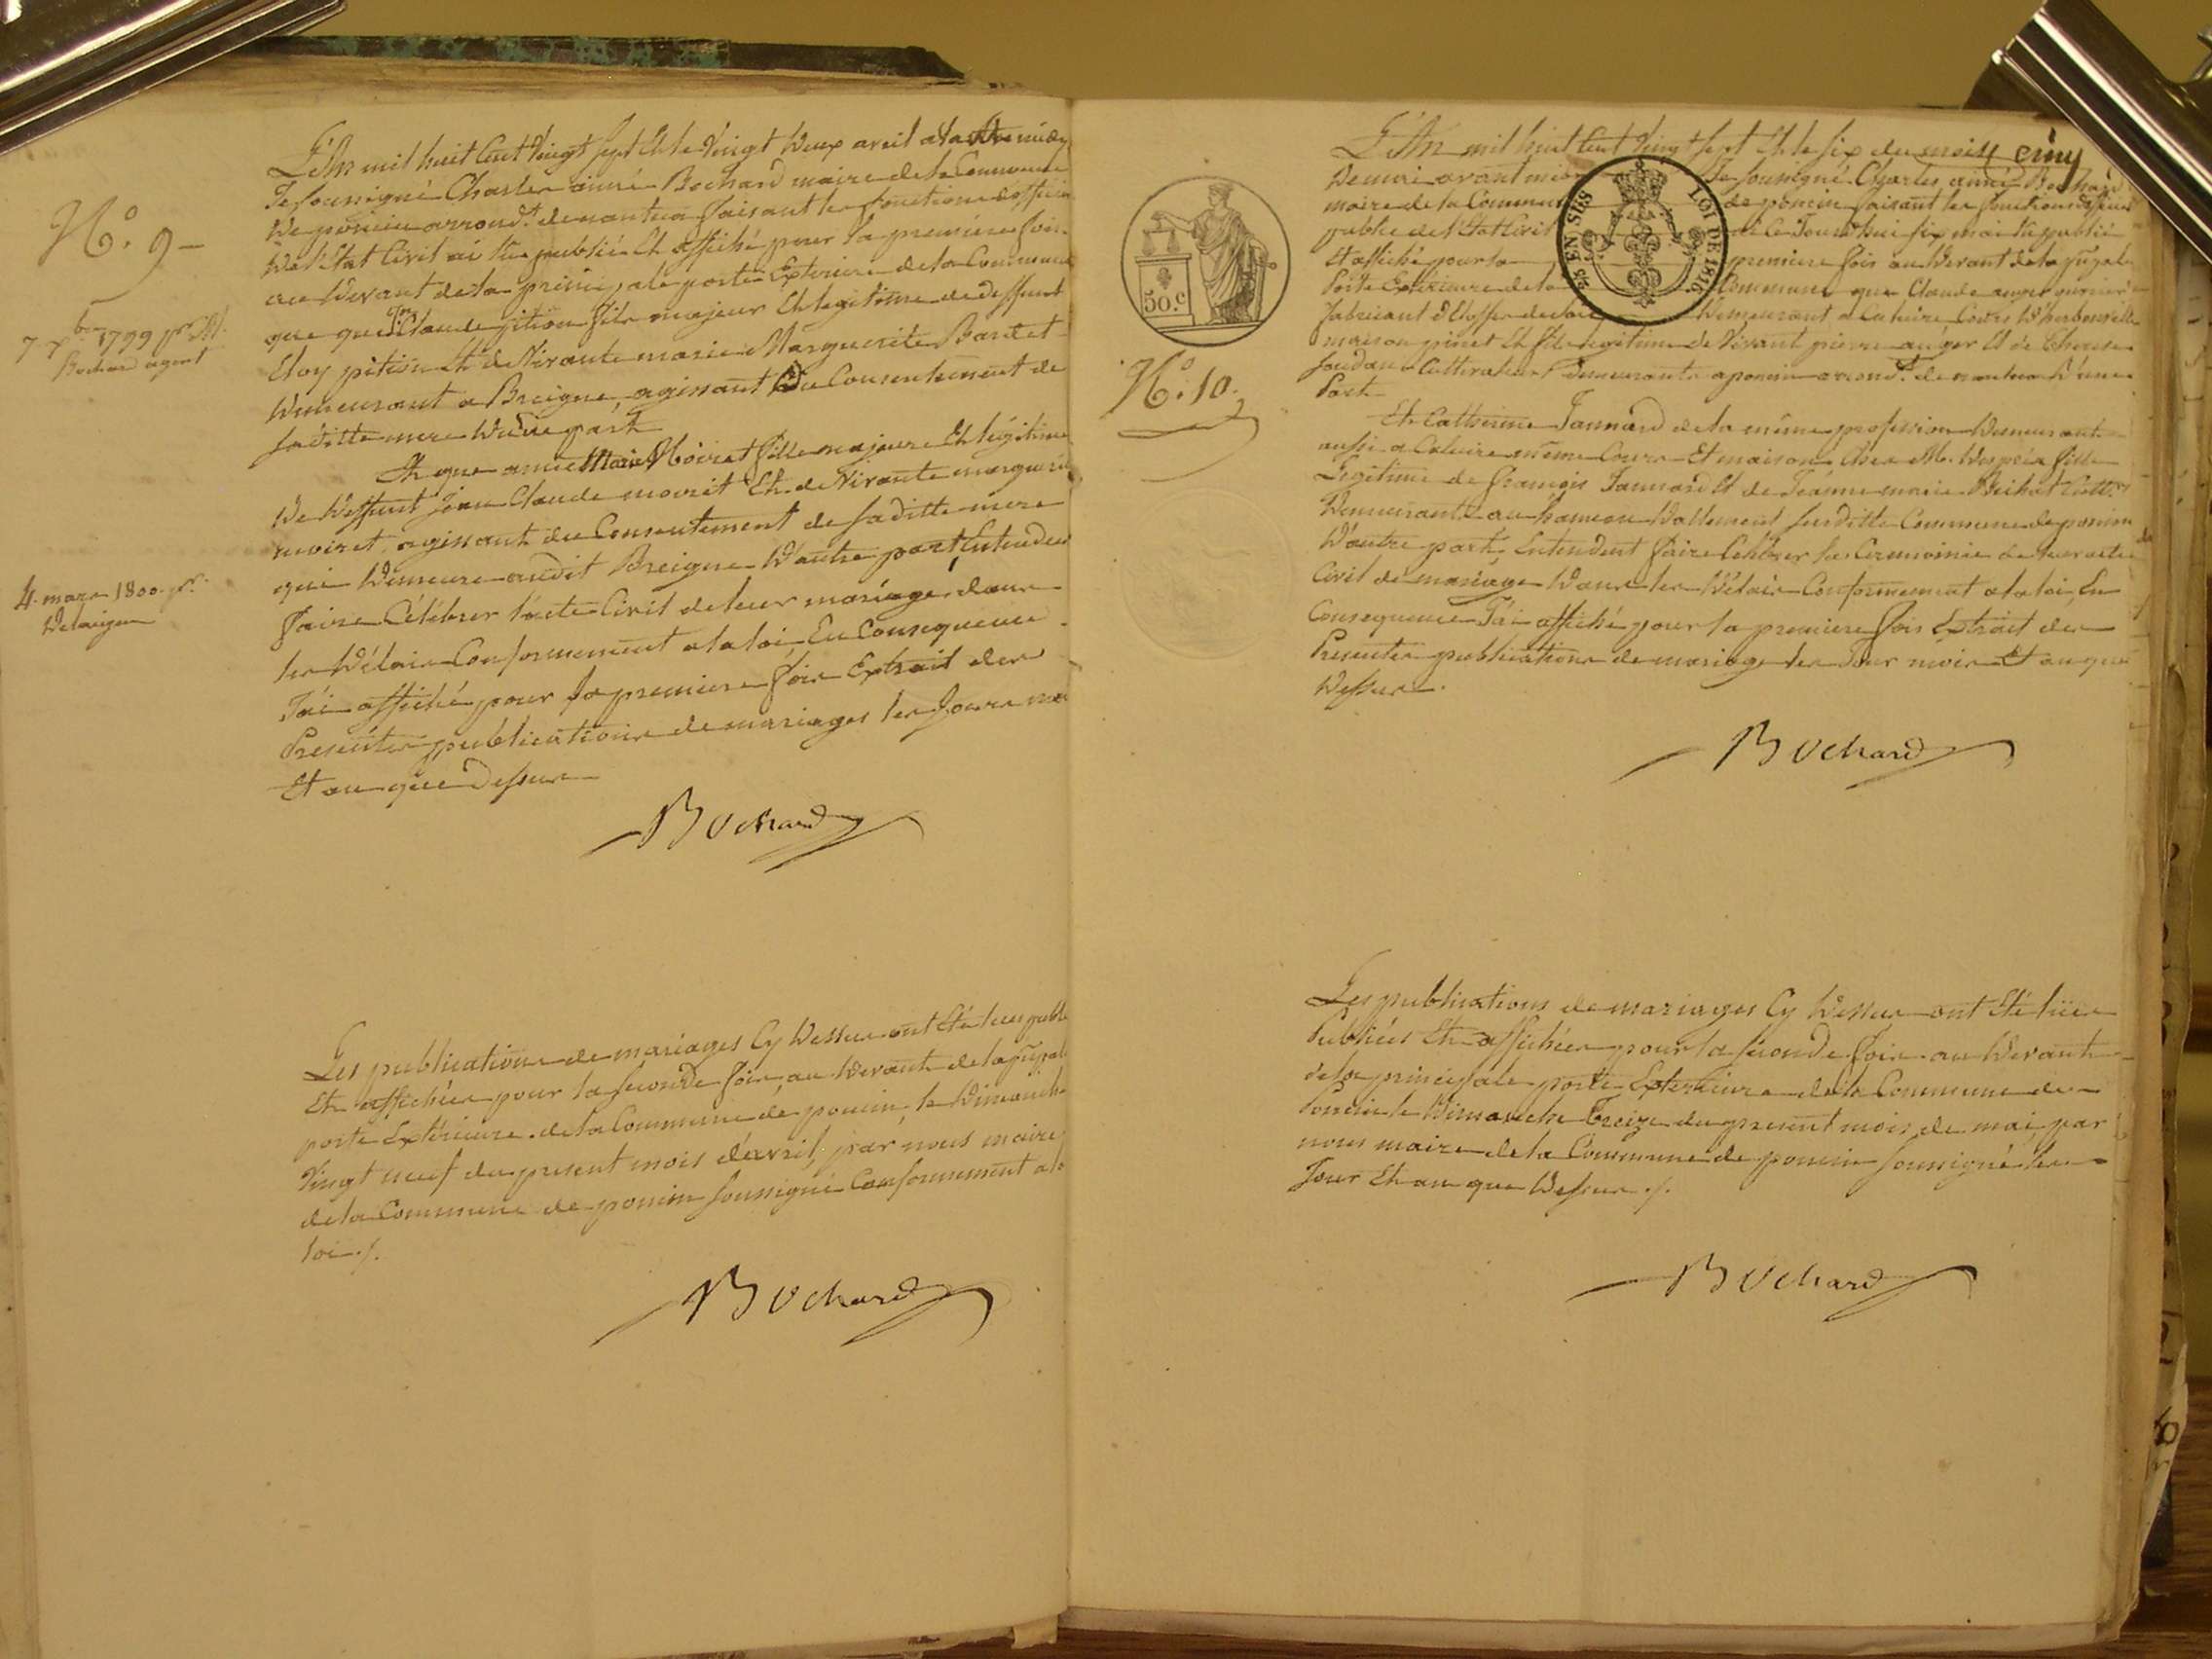 N.° 9
7 Xbre 1799
Bochard agent
4. mars 1800
L'An mil huit Cent vingt sept Et le vingt deux avril
Je soussigné Charles aimé Bochard maire de la Commune
De poncin arrond.t de nantua faisant les fonctions d'officier
De l'Etat Civil ai lu publié Et affiché pour la premiere fois
au Devant de la principale porte Exterieure de la Commune
que Claude pition fils majeur Et legitime de deffunt
Eloy pition Et de vivante marie Marguerite
Demeurant a Breigne, agissant du Consentement de
saditte mere D'une part
Et que Marie Moiret fille majeure Et légitime
De Deffunt Jean Claude moiret Et de vivante
moiret agissant du Consentement de saditte mere
qui Demeure audit Breigne D'autre part, Entendent
faire Célébrer l'acte Civil de leur mariage dans
les Délais Conformement a la loi, En Consequence
J'ai affiché pour la premiere fois Extrait des
Presentes publications de mariages les Jours mois
Et an que Dessus
Bochard
Les publications de mariages Cy Dessus ont Eté lues
Et affichées pour la seconde fois, au Devant de la
porte Extérieure de la Commune de poncin, le Dimanche
vingt neuf du present mois d'avril, par nous maire
de la Commune de poncin soussigné Conformement a la
loi ./.
Bochard
50.c
N.° 10.
25 EN SUS
LOI DE 1816.
cinq
L'An mil huit Cent vingt sept Et le six du mois
De mai avant midi Je soussigné Charles aimé Bochard
maire de la Commune de poncin faisant les fonctions
public de l'Etat Civil ai Ce Jourd'hui six mai lu publié
Et affiché pour la premiere fois au Devant de la
Porte Exterieure de la Commune que Claude auger ouvrier
fabricant d'Etoffes de soie Demeurant a Caluire Cours D'herbouville
maison pinet Et fils legitime de vivant pierre auger Et de Therese
Cultivateurs Demeurants a poncin arrond.t de nantua D'une
Part
Et Catherine Jannard de la même profession Demeurante
aussi a Caluire même Cours Et maison Chez M. fille
Legitime de françois Jannard Et de Jeanne marie Bichat
Demeurants au hameau D'allement susditte Commune de poncin
D'autre part; Entendent faire Célébrer les Ceremonie de leur acte
Civil de mariage Dans les Délais Conformement a la loi, En
Consequence J'ai affiché pour la premiere fois Extrait des
Presentes publications de mariage les Jour mois Et an que
Dessus.
Bochard
Les publications de mariages Cy Dessus ont Eté lues
Publiées Et affichées pour la seconde fois au Devant
de la principale porte Exterieure de la Commune de
Poncin le Dimanche treize du present mois de mai par
nous maire de la Commune de poncin soussigné les
Jour Et an que Dessus ./.
Bochard